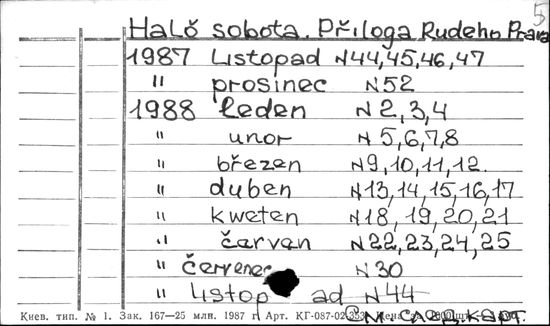 5
Halŏ sobota. Přiloga Rudeho Prava
1987 Listopad N44,45,46,47
" prosinec N52
1988 leden N 2,3,4
" unor N 5,6,7,8
" březen N9,10,11,12.
" duben N13,14,15,16,17
" kweten N18, 19,20,21
" čarvan N22,23,24,25
" červenec N30
" listop ad N44
См. след. карт.
Киев. тип. № 1. Зак. 167—25 млн. 1987 г. Арт. КГ-087-02-353.